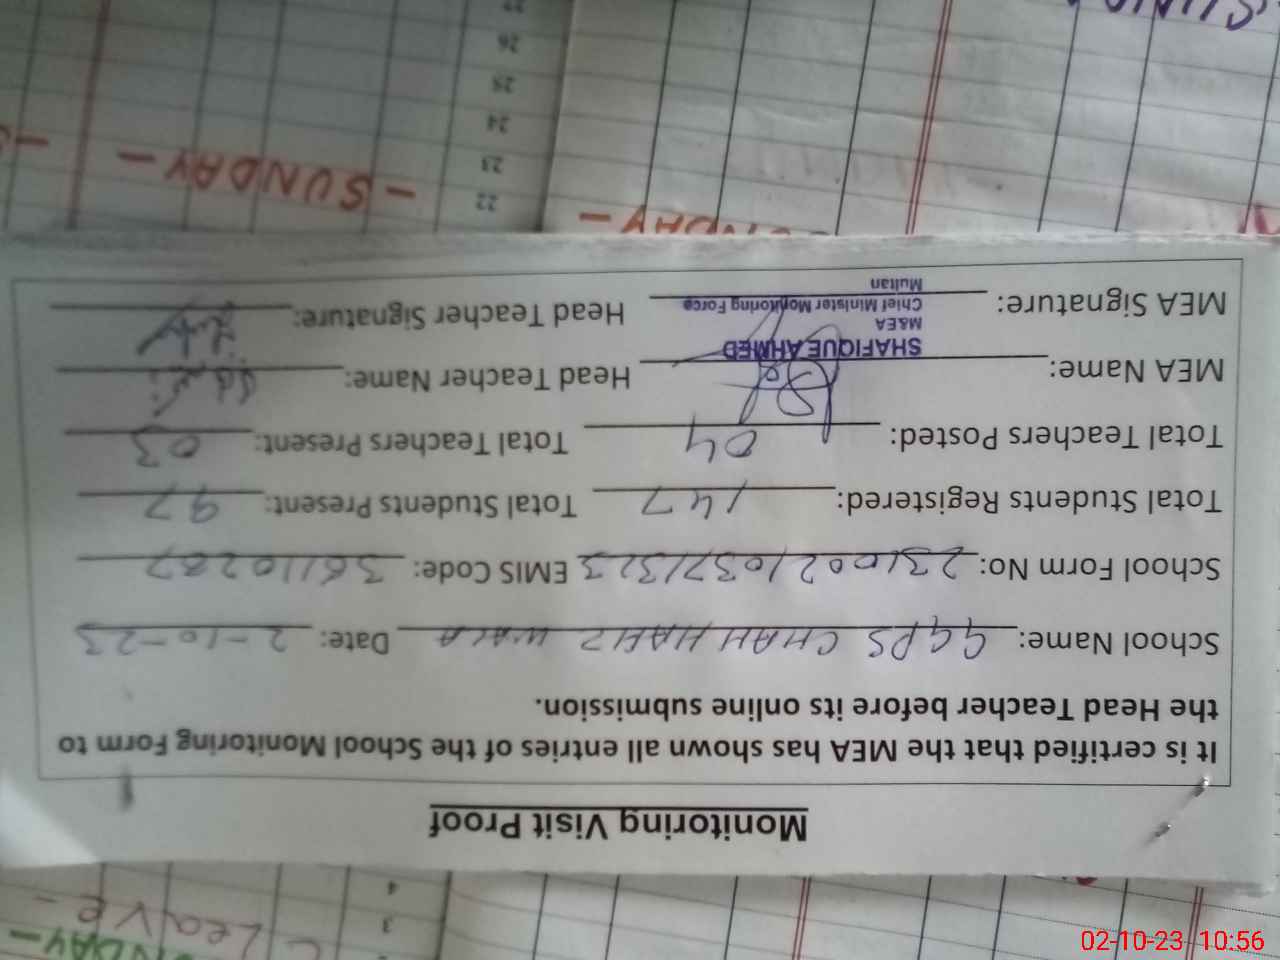 Monitoring Visit Proof
It is certified that the MEA has shown all entries of the School Monitoring Form to
the Head Teacher before its online submission.
School Name: GGPS CHAH HAFIZ WALA Date: 2-10-23
School Form No: 23100210371323 EMIS Code: 36110287
Total Students Registered: 147 Total Students Present: 97
Total Teachers Posted: 04 Total Teachers Present: 03
MEA Name: Head Teacher Name:
SHAFIQUE AHMED
M&EA
Chief Minister Monitoring Force
Multan
MEA Signature: Head Teacher Signature:
22
23
24
25
26
27
-SUNDAY-
3
4
C Leave-
02-10-23 10:56